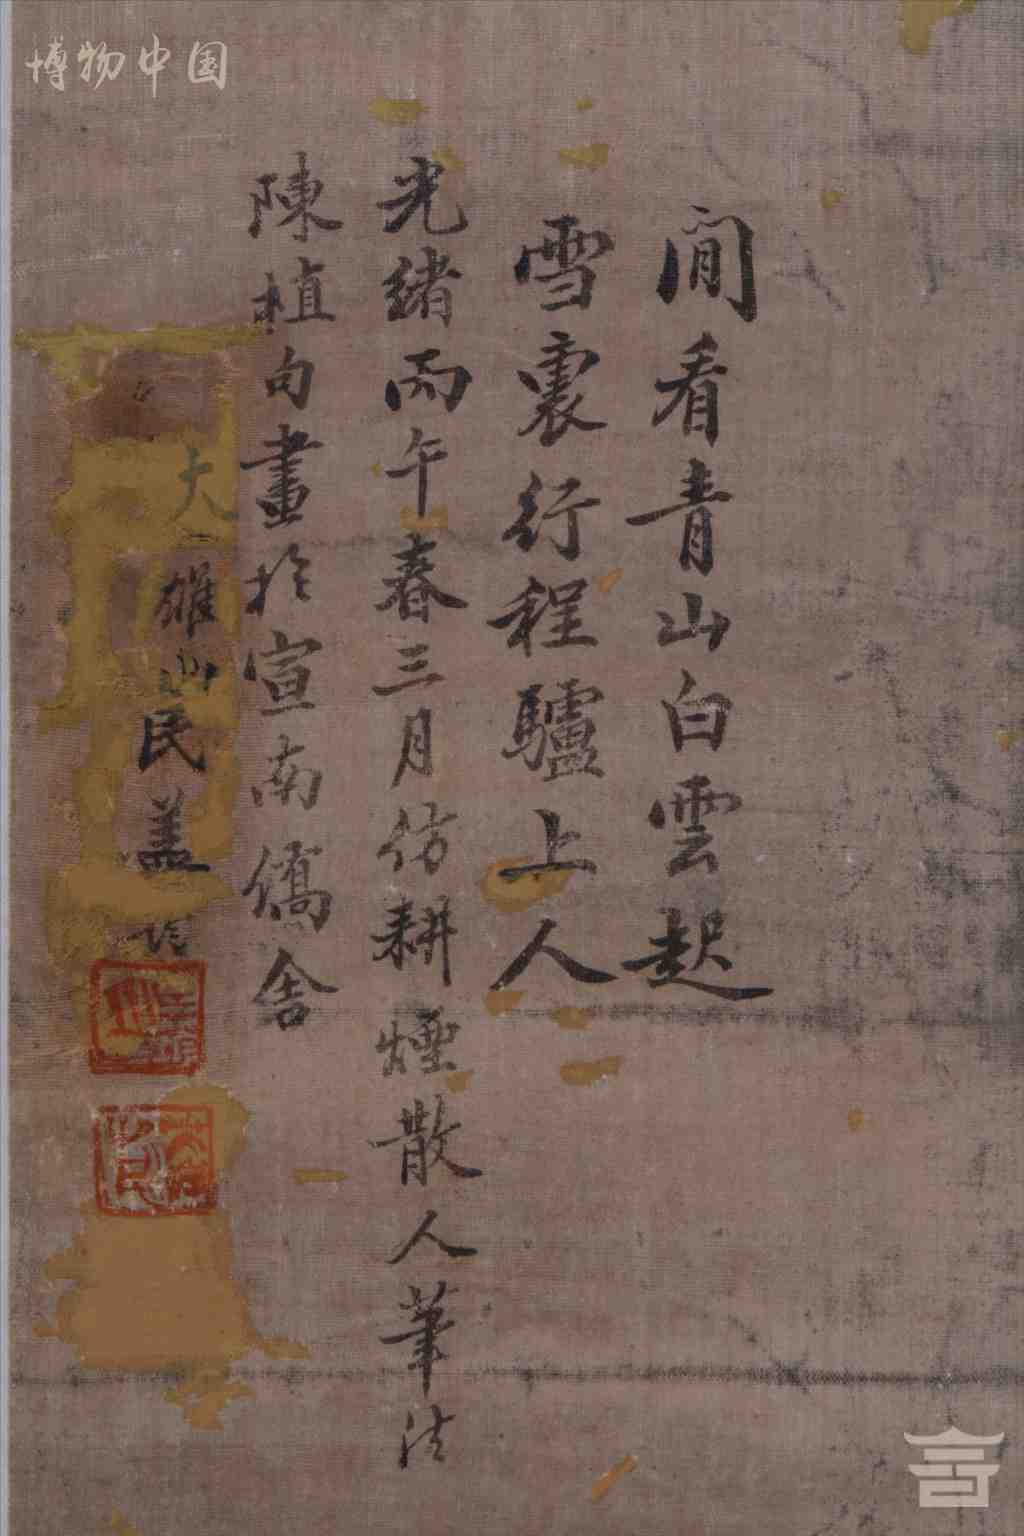 博物中国
閒看青山白雲起
雪裏行程驢上人
光緒丙午春三月仿耕煙散人筆法
陳植句畫於宣南僑舍
大雄山民盖